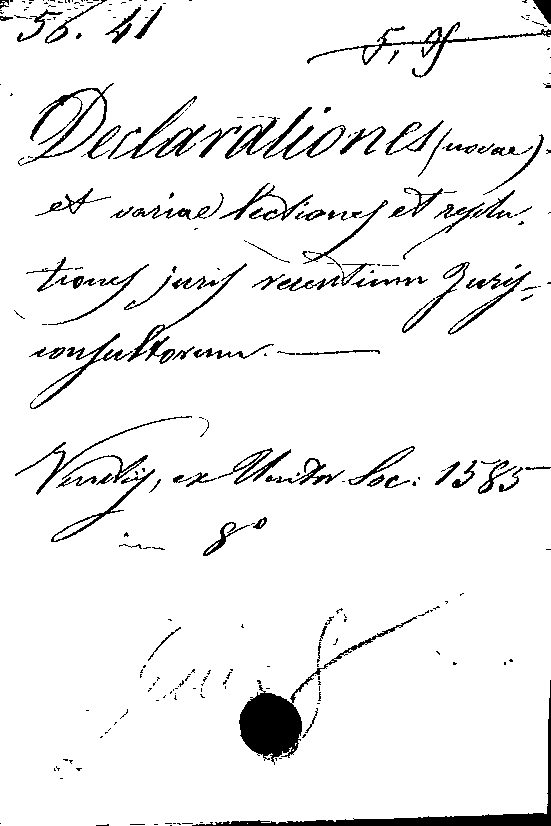 56. 41
Declarationes (novae)
et variae lectiones et resolu-
tiones juris recentium Juris-
consultorum.
Venetiis, ex Unitor Soc: 1585
in 8º